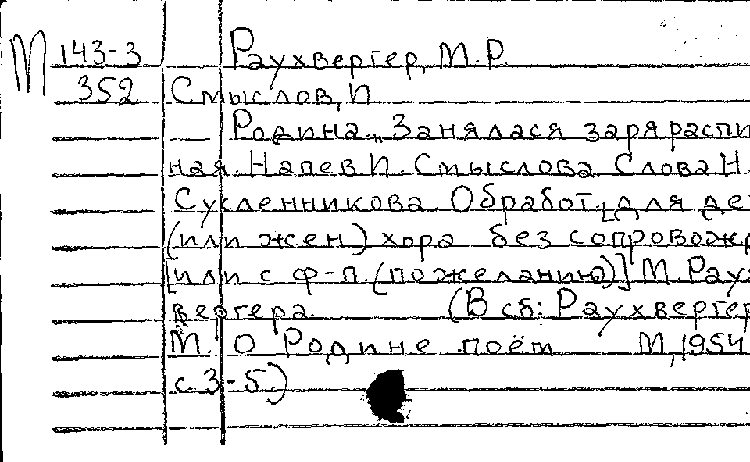 М 143-3 Раухвергер, М.Р.
352 Смыслов, И
Родина „Занялася заря распи
ная. Напев И. Смыслова Слова Н.
Сусленникова Обработ. [для дет
(или жен) хора без сопровожд
[или с ф-п. (по желанию)] М. Раух
вергера. (В сб: Раухвергер
М. О Родине поём М, 1954
с. 3-5.)